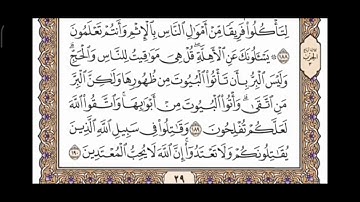 لِتَأْكُلُوا۟ فَرِيقًا مِّنْ أَمْوَٰلِ ٱلنَّاسِ بِٱلْإِثْمِ وَأَنتُمْ تَعْلَمُونَ
١٨٨ يَسْـَٔلُونَكَ عَنِ ٱلْأَهِلَّةِ ۖ قُلْ هِىَ مَوَٰقِيتُ لِلنَّاسِ وَٱلْحَجِّ ۗ
وَلَيْسَ ٱلْبِرُّ بِأَن تَأْتُوا۟ ٱلْبُيُوتَ مِن ظُهُورِهَا وَلَٰكِنَّ ٱلْبِرَّ
مَنِ ٱتَّقَىٰ ۗ وَأْتُوا۟ ٱلْبُيُوتَ مِنْ أَبْوَٰبِهَا ۚ وَٱتَّقُوا۟ ٱللَّهَ
لَعَلَّكُمْ تُفْلِحُونَ ١٨٩ وَقَٰتِلُوا۟ فِى سَبِيلِ ٱللَّهِ ٱلَّذِينَ
يُقَٰتِلُونَكُمْ وَلَا تَعْتَدُوٓا۟ ۚ إِنَّ ٱللَّهَ لَا يُحِبُّ ٱلْمُعْتَدِينَ ١٩٠
٢٩